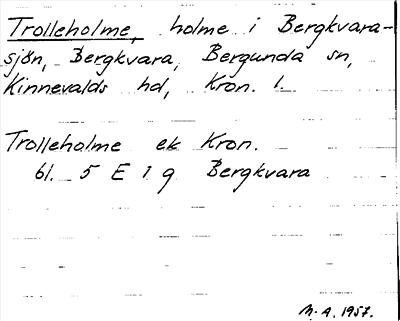 Trolleholme, holme i Bergkvara-
sjön, Bergkvara, Bergunda sn,
Kinnevalds hd, Kron. l.
Trolleholme ek Kron.
bl. 5 E 1 g Bergkvara
M. A. 1957.